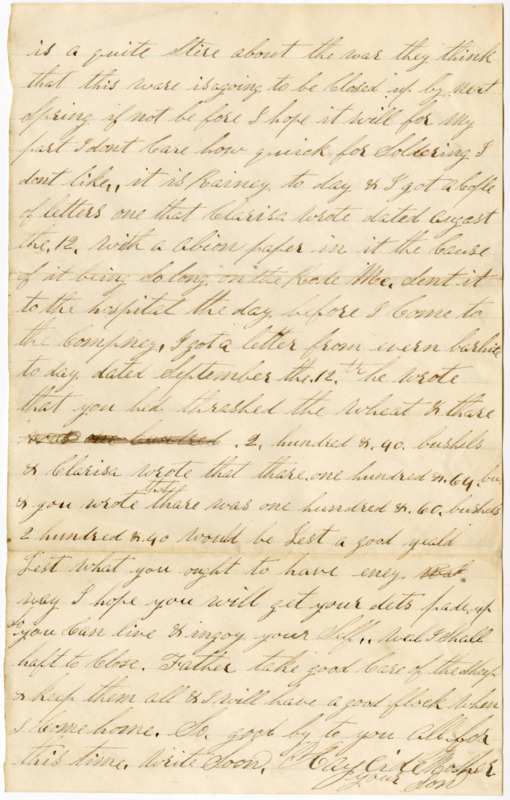 is a quite Stire about the war they think
that this ware is agoing to be Closed up by next
Spring if not be fore I hope it will for My
part I dont Care how quick for Soldering I
dont like,, it is Rainey to day & I got a Cople
of letters one that Clarisa wrote dated august
the. 12. with a abion paper in it the Cause
of it being So long on the Rode Mc. Sent it
to the hospital the day before I Come to
the Compney, I got a letter from evern barhite
to day dated September the. 12.th he wrote
that you hid thrashed the wheat & thare
one hundred . 2. hundred & .40. bushels
& Clarisa wrote that thare one hundred &. 64. bu
& you wrote that thare was one hundred &. 60. bushels
2 hundred & 40 would be Jest a good yeald
Jest what you ought to have eney
way I hope you will get your dets pade, up
So you Can live & ingoy your Self,, Well I Shall
haft to Close. Father take good Care of the Sheep
& keep them all & I will have a good flock When
I Come home. So good by to you All for
this time. Write Soon. Mosher
your Son